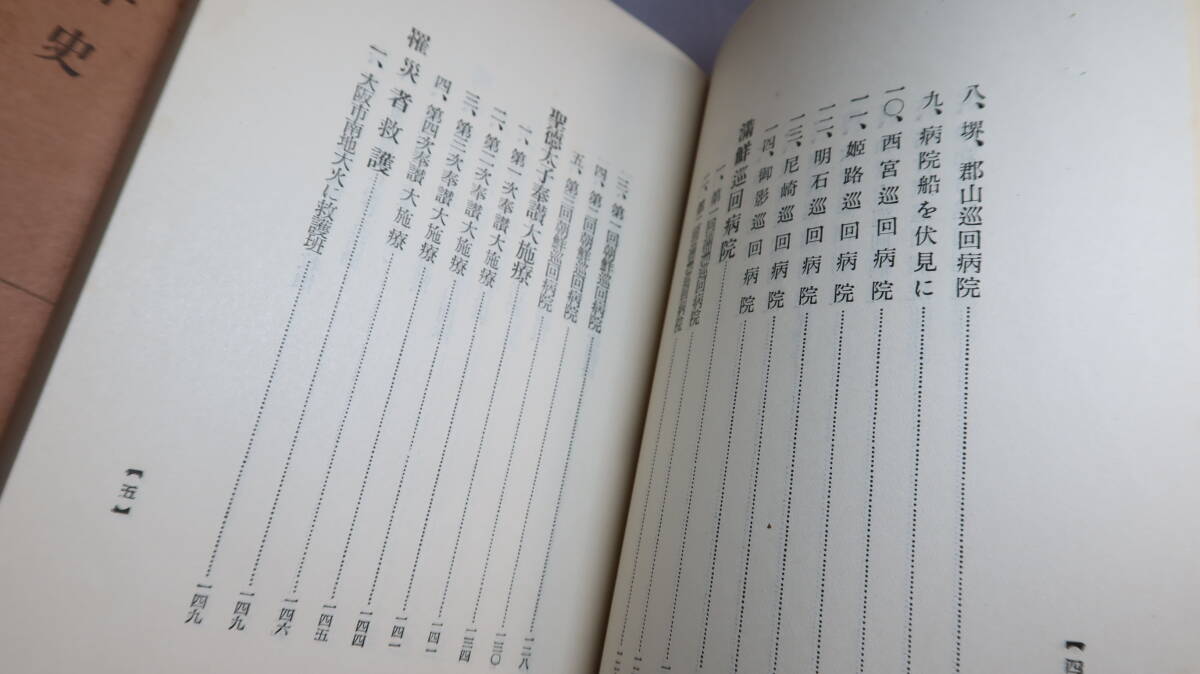 八、堺、郡山巡回病院
九、病院船を伏見に
一〇、西宮巡回病院
一一、姫路巡回病院
一二、明石巡回病院
一三、尼崎巡回病院
一四、御影巡回病院
滿鮮巡回病院
一、第一回滿洲巡回病院
【四
三、第一回朝鮮巡回病院 一二八
四、第二回朝鮮巡回病院 一三〇
五、第三回朝鮮巡回病院 一三四
聖德太子奉讃大施療 一四一
一、第一次奉讃大施療 一四一
二、第二次奉讃大施療 一四四
三、第三次奉讃大施療 一四五
四、第四次奉讃大施療 一四六
罹災者救護 一四九
一、大阪市南地大火に救護班 一四九
【五】
史